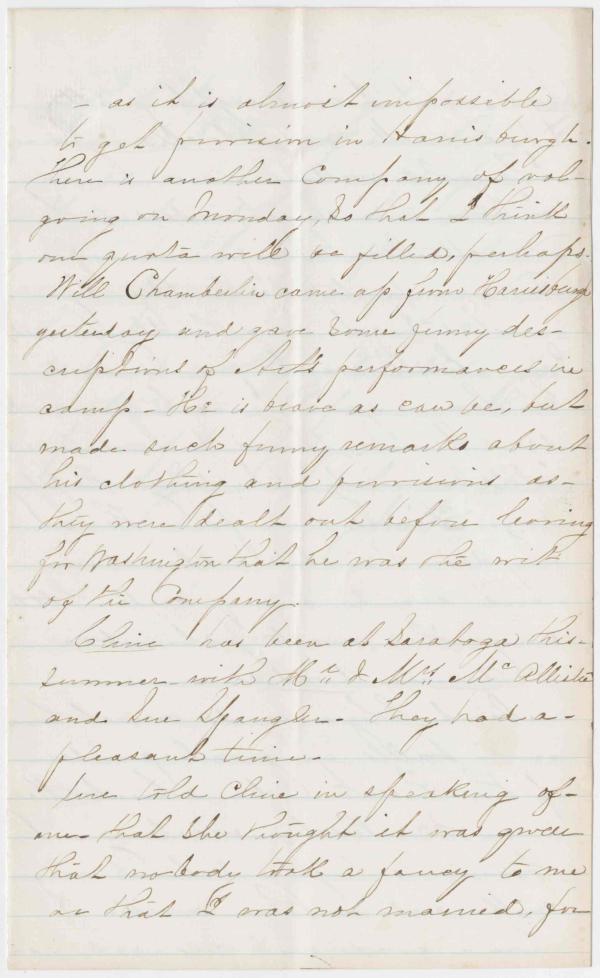 - as it is almost impossible
to get provision in Harrisburgh.
There is another Company of vol-
going on Monday, so that I think
our quota will be filled, perhaps.
Will Chamberlin came up from Harrisburgh
yesterday and gave some funny des-
criptions of Art's performances in
camp - He is brave as can be, but
made such funny remarks about
his clothing and provisions as-
they were dealt out before leaving
for Washington that he was the wit
of the Company.
Cline has been at Saratoga this-
summer with & Mrs McAllister
and Sue They had a-
pleasant time-
Sue told Cline in speaking of-
me- that she thought it was queer
that nobody took a fancy to me
or that I was not married, for